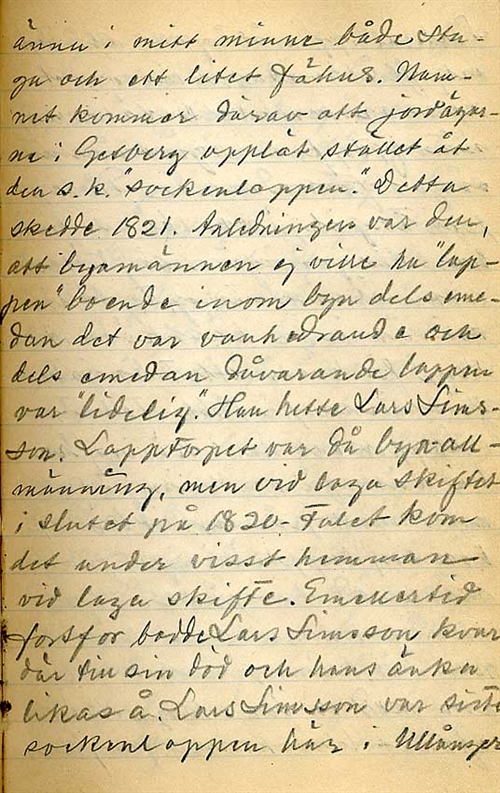 ännu i mitt minne både stu-
ga och ett litet fähus. Nam-
net kommer därav att jordägar-
ne i Getberg upplät stället åt
den s.k. "sockenlappen." Detta
skedde 1821. Anledningen var den,
att byamännen ej ville ha "lap-
pen" boende inom byn dels eme-
dan det var vanhedrande och
dels emedan dåvarande lappen
var "lidelig". Han hette Lars Sims-
son. Lapptorpet var då bya-all-
männing, men vid laga skiftet
i slutet på 1820-talet kom
det under visst hemman
vid laga skifte. Emellertid
fortfor bodde Lars Simsson kvar
där till sin död och hans änka
likaså. Lars Simsson var siste
sockenlappen här i Ullånger